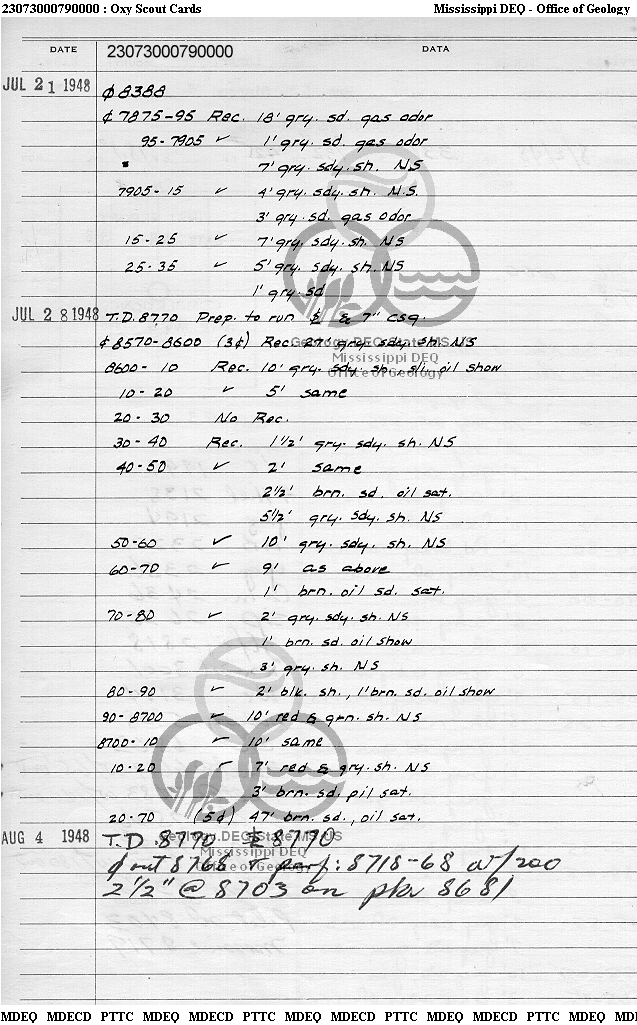 23073000790000 : Oxy Scout Cards Mississippi DEQ - Office of Geology
DATE 23073000790000 DATA
JUL 21 1948 ₵8388
₵7875-95 Rec. 18' gry. sd. gas odor
95-7905 ✓ 1' gry. sd. gas odor
7' gry. sdy. sh. NS
7905-15 ✓ 4' gry. sdy. sh. N.S.
3' gry. sd. gas odor
15-25 ✓ 7' gry. sdy. sh. NS
25-35 ✓ 5' gry. sdy. sh. NS
1' gry. sd
JUL 28 1948 T.D. 8770 Prep. to run & 7" csg.
₵8570-8600 (3₵) Rec. 27' gry. sdy. sh. NS
Geology.DEQ.State.MS.US
Mississippi DEQ
8600-10 Rec. 10' gry. sdy. sh. sli. oil show
Office of Geology
10-20 ✓ 5' same
20-30 No Rec.
30-40 Rec. 1½' gry. sdy. sh. NS
40-50 ✓ 2' same
2½' brn. sd. oil sat.
5½' gry. sdy. sh. NS
50-60 ✓ 10' gry. sdy. sh. NS
60-70 ✓ 9' as above
1' brn. oil sd. sat.
70-80 ✓ 2' gry. sdy. sh. NS
1' brn. sd. oil show
3' gry. sh. NS
80-90 ✓ 2' blk. sh., 1' brn. sd. oil show
90-8700 ✓ 10' red & grn. sh. NS
8700-10 ✓ 10' same
10-20 ✓ 7' red & gry. sh. NS
3' brn. sd. oil sat.
20-70 (5₵) 47' brn. sd., oil sat.
AUG 4 1948 T.D. 8770 8770
Geology.DEQ.State.MS.US
Mississippi DEQ
out 8768 perf: 8718-68 w/200
Office of Geology
2½" @ 8703 on pkr 8681
MDEQ MDECD PTTC MDEQ MDECD PTTC MDEQ MDECD PTTC MDEQ MDECD PTTC MDEQ MD